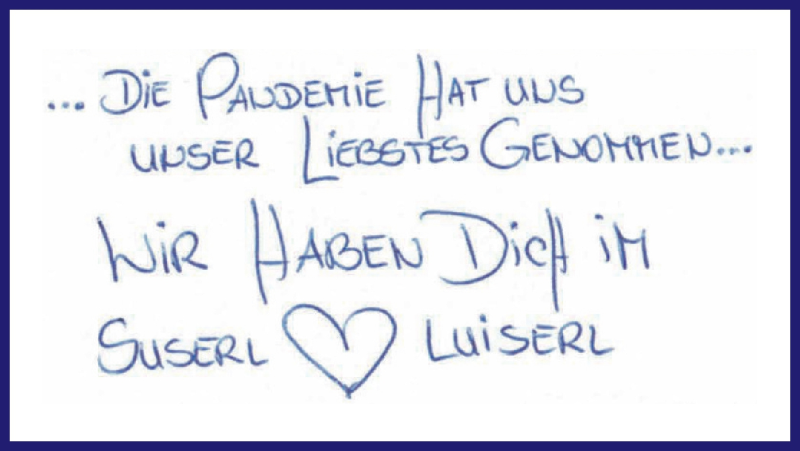 ... Die Pandemie Hat uns
unser Liebstes Genommen...
Wir Haben Dich im
Suserl ♡ Luiserl